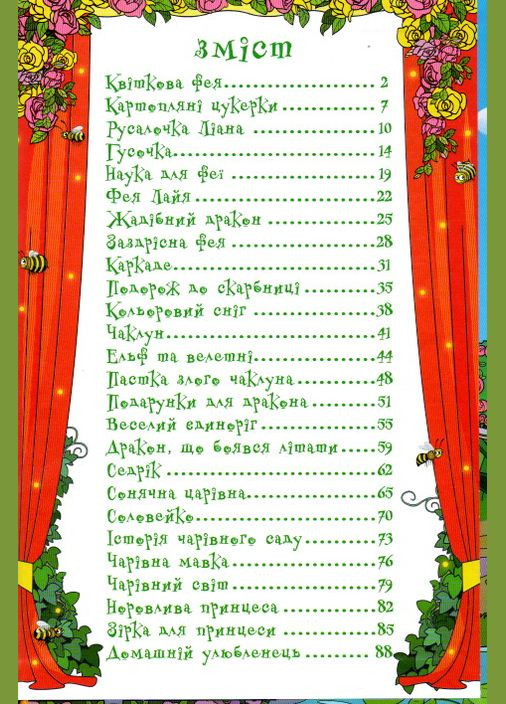 Зміст
Квіткова фея........................ 2
Картопляні цукерки ............... 7
Русалочка Ліана .................... 10
Гусочка............................... 14
Наука для феї ...................... 19
Фея Лайя ............................. 22
Жадібний дракон .................. 25
Заздрісна фея ...................... 28
Каркаде............................... 31
Подорож до скарбниці ............ 35
Кольоровий сніг .................... 38
Чаклун................................ 41
Ельф та велетні..................... 44
Пастка злого чаклуна............. 48
Подарунки для дракона........... 51
Веселий єдиноріг ................... 55
Дракон, що боявся літати ....... 59
Седрік ................................ 62
Сонячна царівна.................... 65
Соловейко............................ 70
Історія чарівного саду ............ 73
Чарівна мавка ...................... 76
Чарівний світ ....................... 79
Норовлива принцеса .............. 82
Зірка для принцеси ............... 85
Домашній улюбленець ............ 88